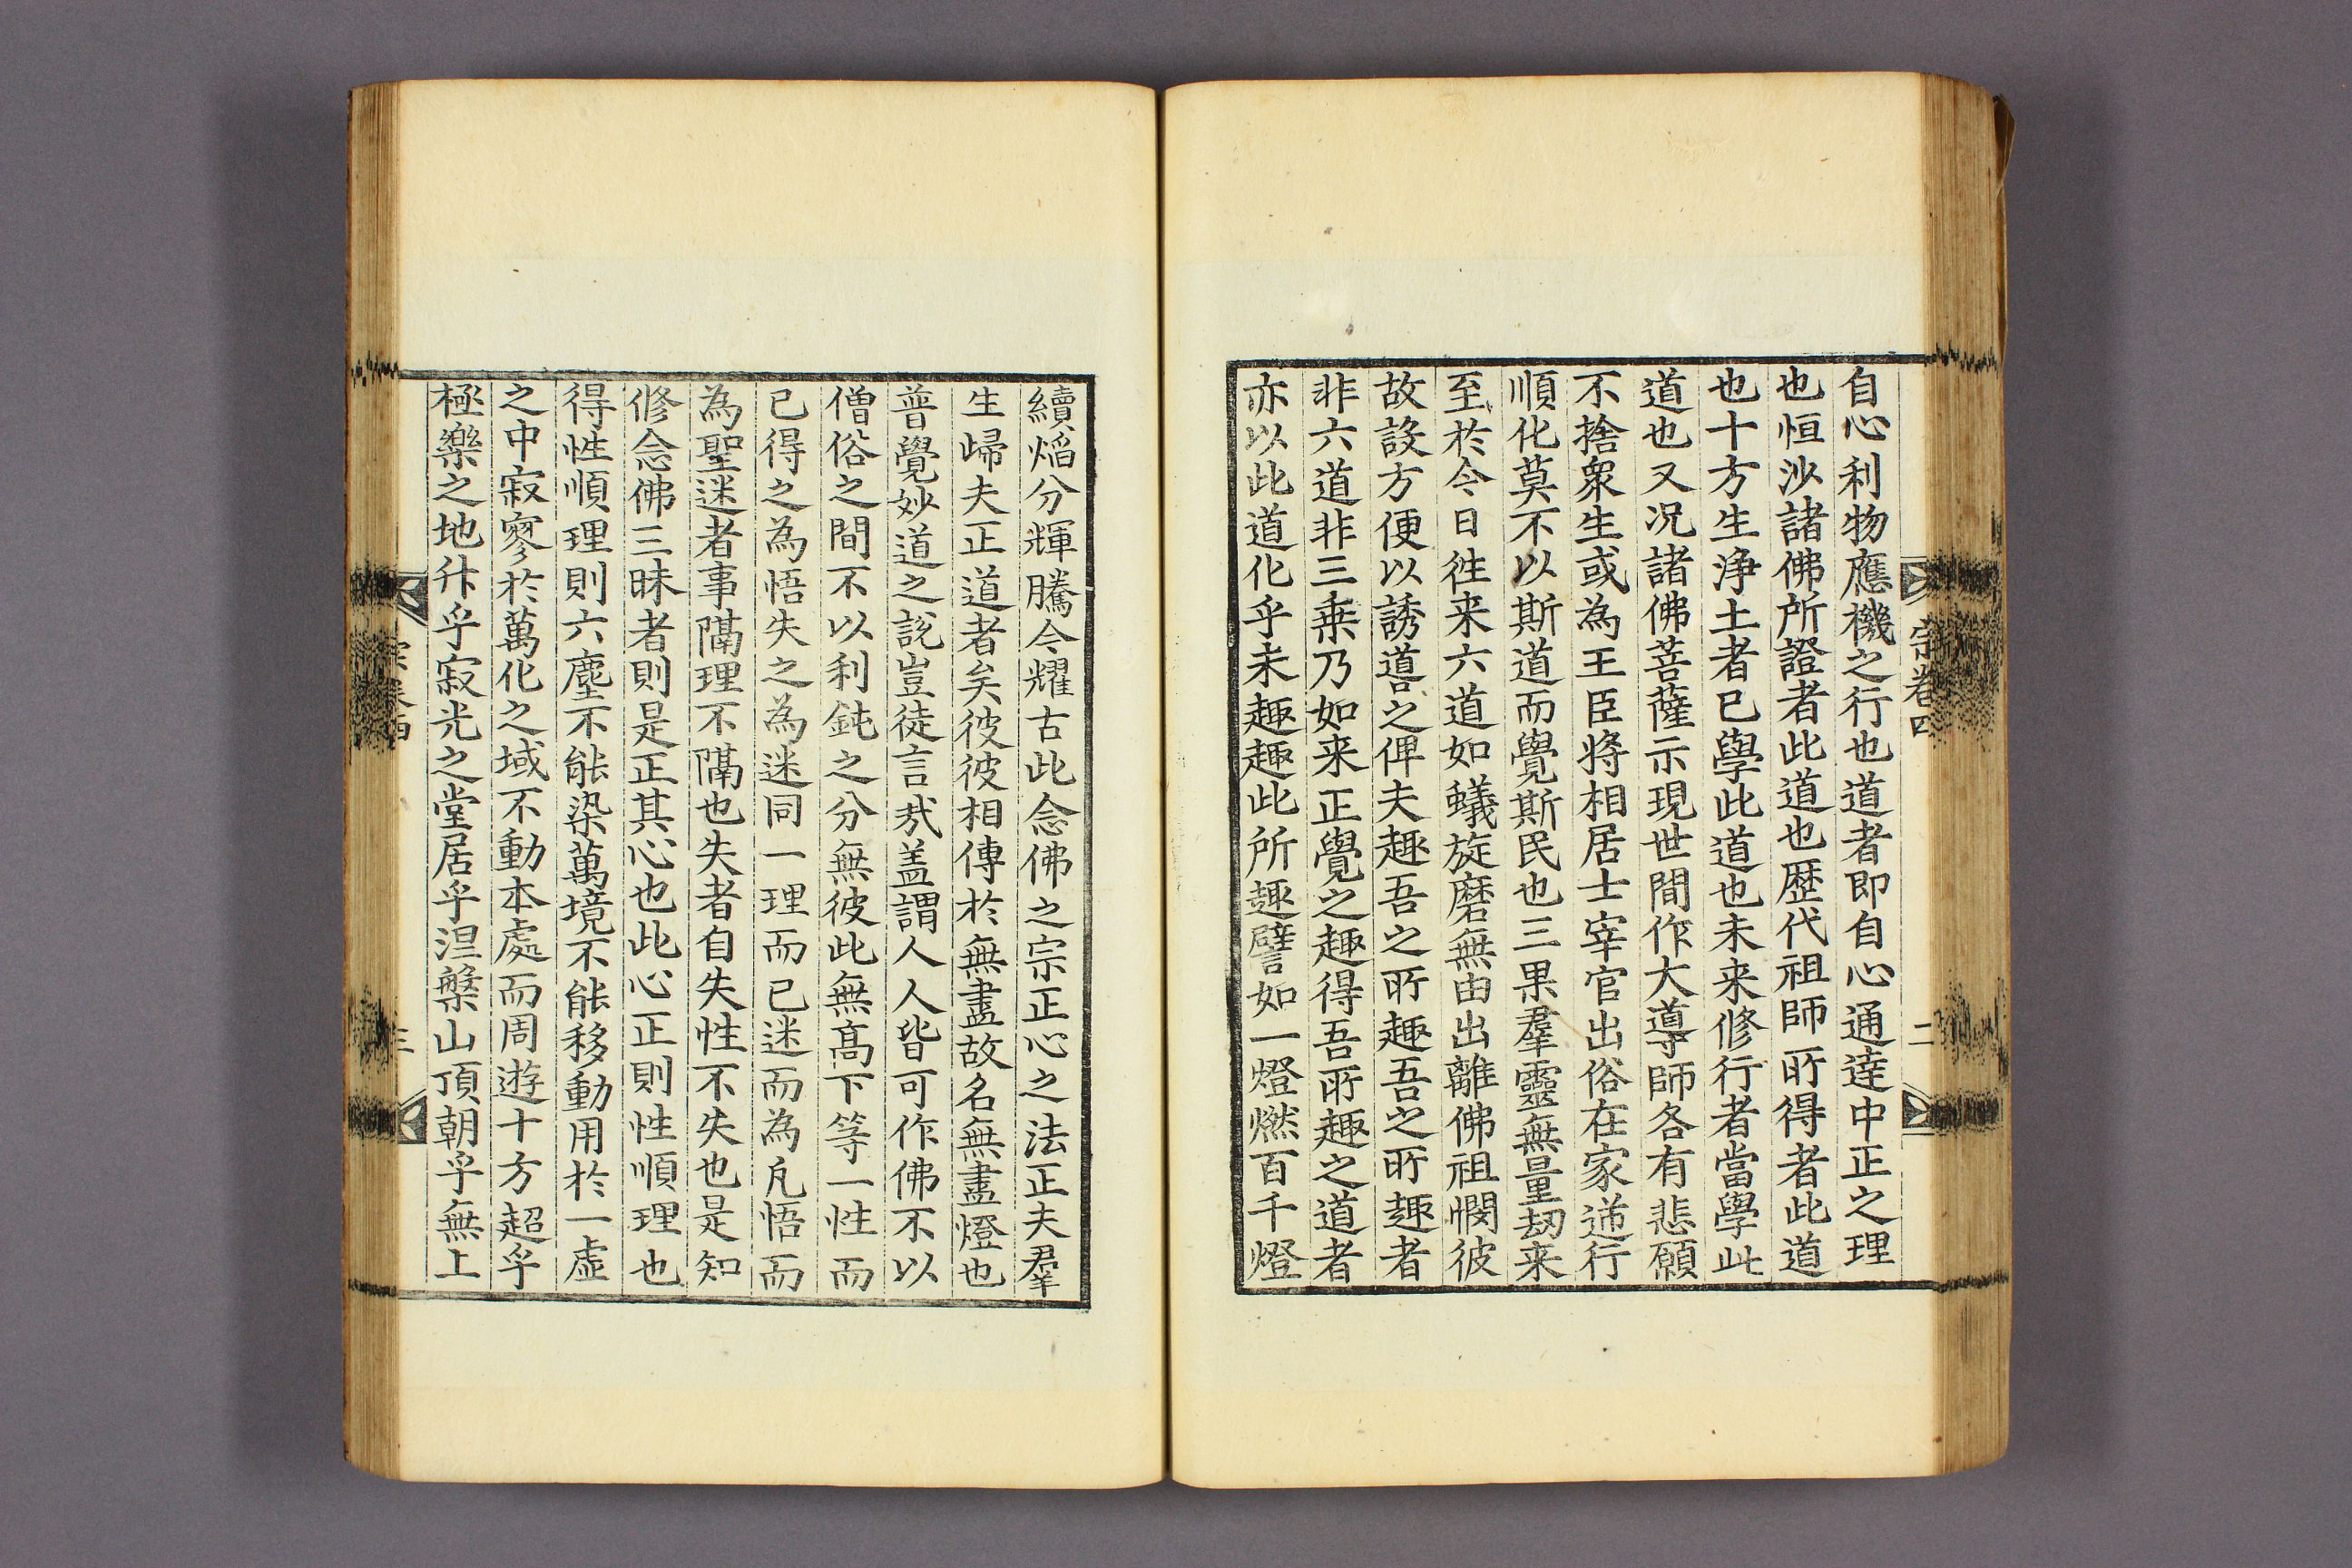 宗卷四
二
自心利物應機之行也道者即自心通達中正之理
也恒沙諸佛所證者此道也歷代祖師所得者此道
也十方生淨土者已學此道也未来修行者當學此
道也又况諸佛菩薩示現世間作大導師各有悲願
不捨衆生或為王臣將相居士宰官出俗在家递行
順化莫不以斯道而覺斯民也三果羣靈無量刼来
至於今日徃来六道如蟻旋磨無由出離佛祖憫彼
故設方便以誘導之俾夫趣吾之所趣吾之所趣者
非六道非三乗乃如来正覺之趣得吾所趣之道者
亦以此道化乎未趣趣此所趣譬如一燈燃百千燈
續焰分輝騰今耀古此念佛之宗正心之法正夫羣
生歸夫正道者矣彼彼相傳於無盡故名無盡燈也
普覺妙道之說豈徒言哉盖謂人人皆可作佛不以
僧俗之間不以利鈍之分無彼此無高下等一性而
已得之為悟失之為迷同一理而已迷而為凡悟而
為聖迷者事隔理不隔也失者自失性不失也是知
修念佛三昧者則是正其心也此心正則性順理也
得性順理則六塵不能染萬境不能移動用於一虛
之中寂寥於萬化之域不動本處而周遊十方超乎
極樂之地升乎寂光之堂居乎涅槃山頂朝乎無上
三